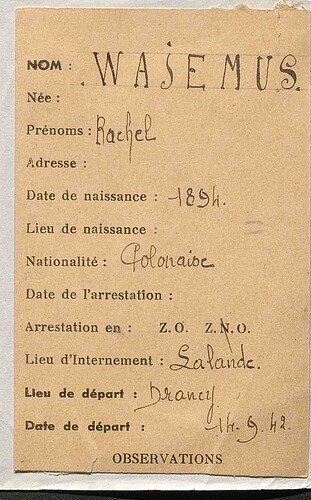 NOM : WAJEMUS.
Née :
Prénoms : Rachel
Adresse :
Date de naissance : -1894.
Lieu de naissance :
Nationalité : Polonaise
Date de l'arrestation :
Arrestation en : Z.O. Z.N.O.
Lieu d'Internement : Lalande.
Lieu de départ : Drancy
Date de départ : -14-9.42.
OBSERVATIONS